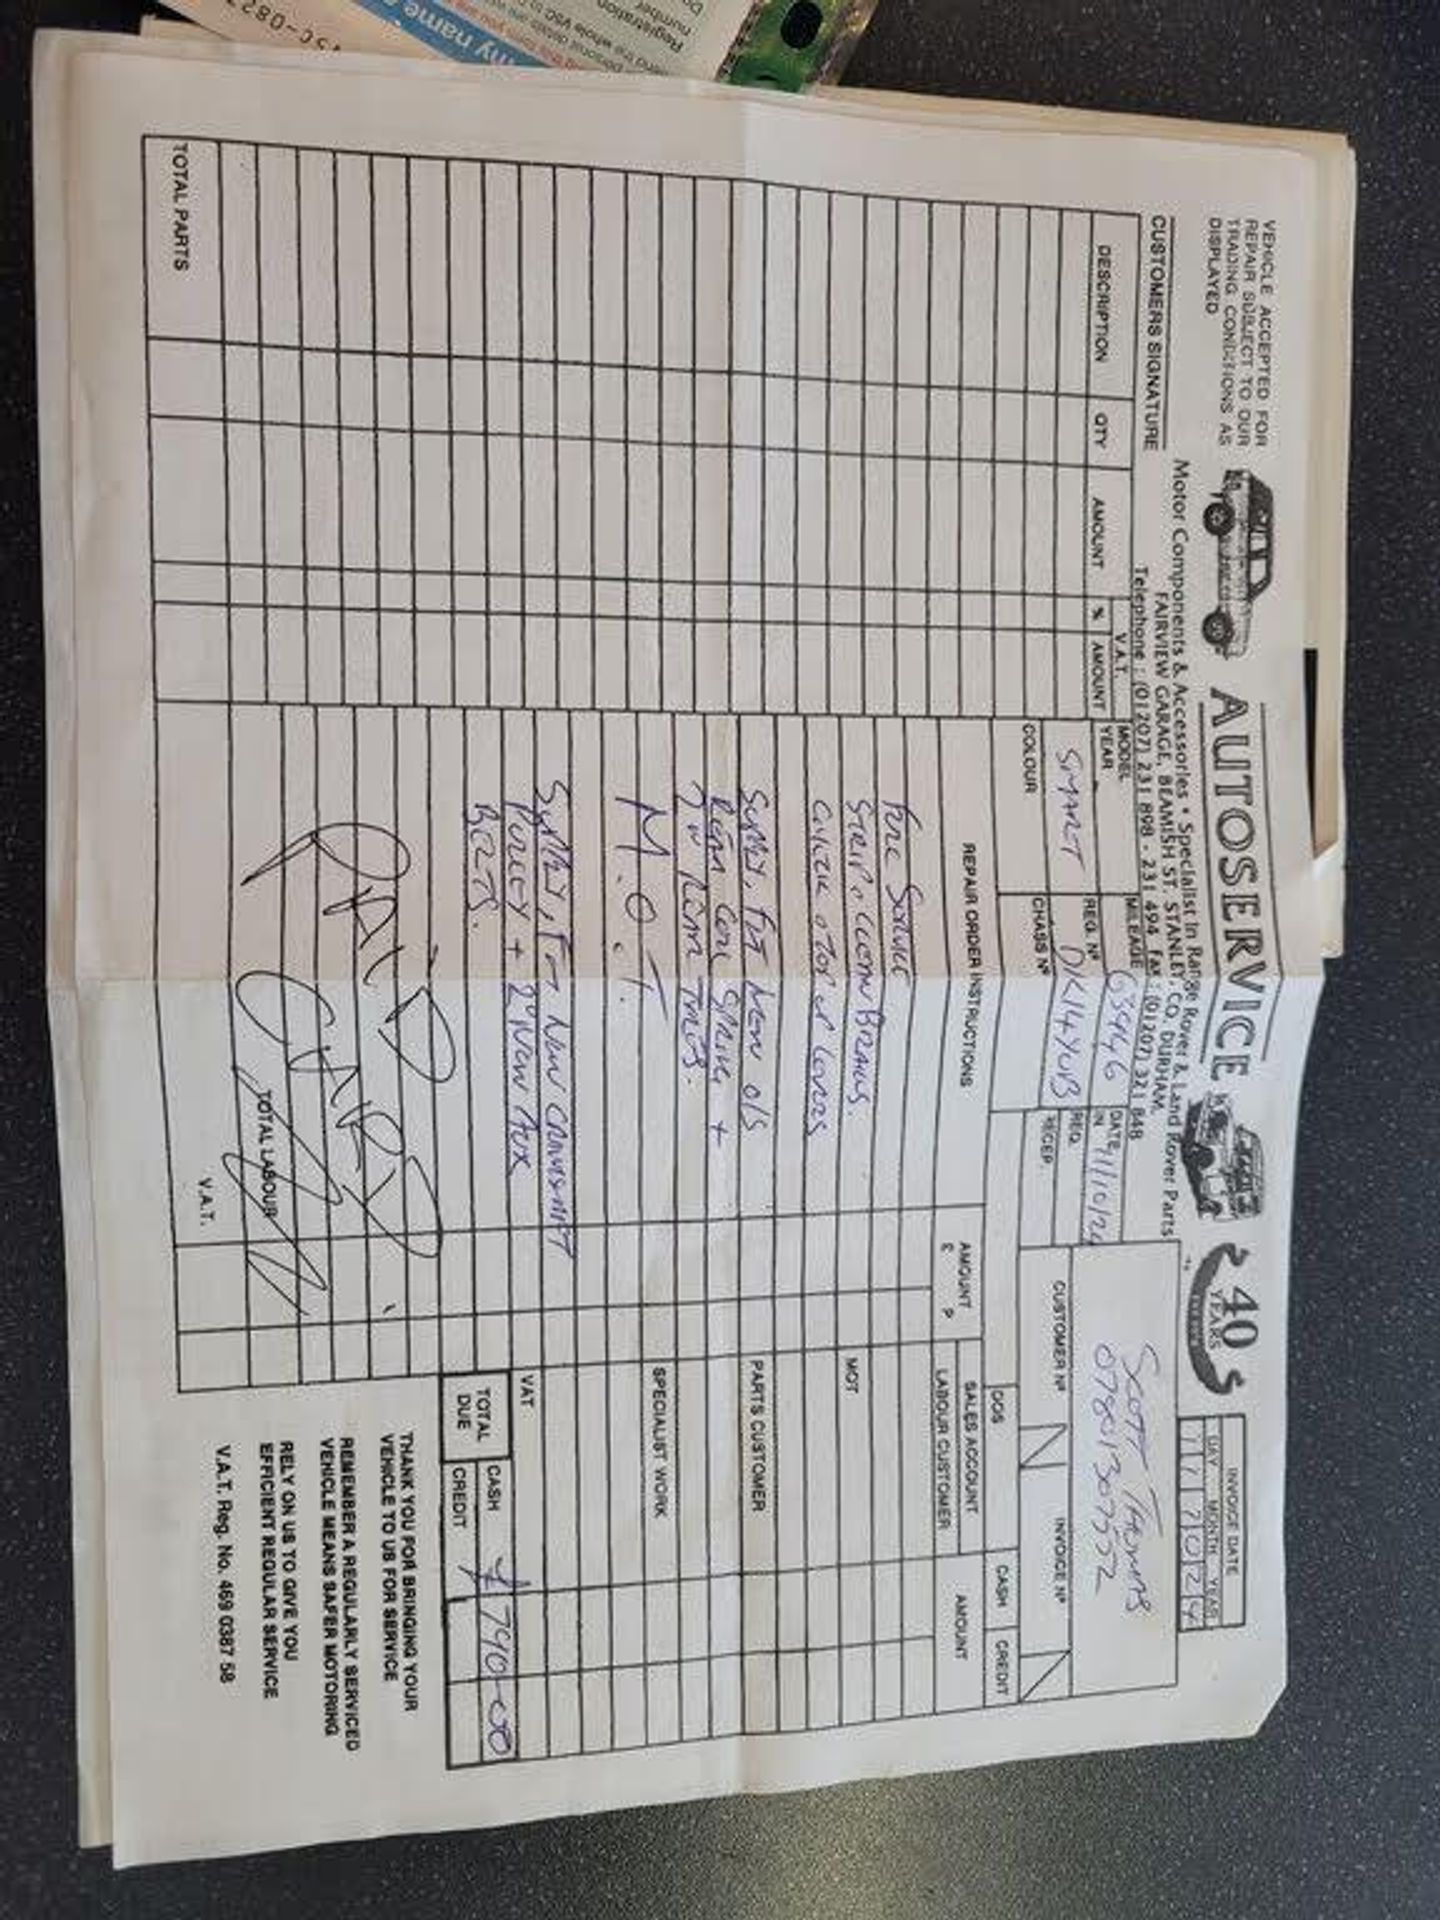 VEHICLE ACCEPTED FOR
REPAIR SUBJECT TO OUR
TRADING CONDITIONS AS
DISPLAYED
CUSTOMERS SIGNATURE
AUTOSERVICE
40
YEARS
Motor Components & Accessories * Specialist in Range Rover & Land Rover Parts
FAIRVIEW GARAGE, BEAMISH ST. STANLEY, CO. DURHAM.
Telephone : (01207) 231 898 - 231 494 Fax : (01207) 321 848
INVOICE DATE
DAY MONTH YEAR
Scott Thomas
CUSTOMER Nº
INVOICE Nº
DESCRIPTION
QTY
AMOUNT
V.A.T.
%
AMOUNT
TOTAL PARTS
MODEL
YEAR
SMART
MILEAGE 63446
DATE IN
REG. Nº DK14YUB
REQ.
COLOUR
CHASS Nº
RECEP.
REPAIR ORDER INSTRUCTIONS
AMOUNT
£ P
Full Service
Strip, Clean Brakes.
Check
Supply, Fit New O/S
Rear Coil Spring +
M.O.T.
Supply, Fit New Crankshaft
Pulley + 2 New Aux
Belts.
PAID
TOTAL LABOUR
V.A.T.
DOS
CASH
CREDIT
SALES ACCOUNT
AMOUNT
LABOUR CUSTOMER
MOT
PARTS CUSTOMER
SPECIALIST WORK
VAT
TOTAL
DUE
CASH
CREDIT
£ 790-00
THANK YOU FOR BRINGING YOUR
VEHICLE TO US FOR SERVICE
REMEMBER A REGULARLY SERVICED
VEHICLE MEANS SAFER MOTORING
RELY ON US TO GIVE YOU
EFFICIENT REGULAR SERVICE
V.A.T. Reg. No. 469 0387 58
my name
Registration
number